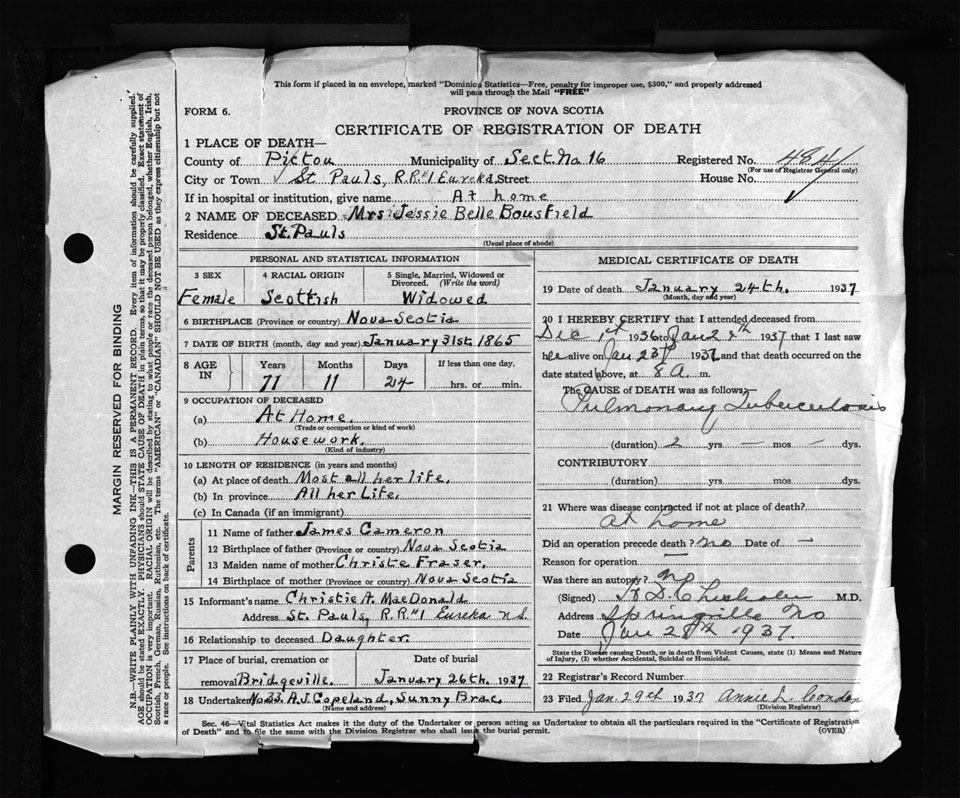 This form if placed in an envelope, marked "Dominion Statistics—Free, penalty for improper use, $300," and properly addressed
will pass through the Mail "FREE"
FORM 6.
PROVINCE OF NOVA SCOTIA
CERTIFICATE OF REGISTRATION OF DEATH
1 PLACE OF DEATH—
County of Pictou Municipality of Sect. No 16 Registered No. 484
(For use of Registrar General only)
City or Town St Pauls, R.R#1 Eureka Street House No.
If in hospital or institution, give name At home
2 NAME OF DECEASED Mrs Jessie Belle Bousfield
Residence St. Pauls
(Usual place of abode)
PERSONAL AND STATISTICAL INFORMATION
3 SEX 4 RACIAL ORIGIN 5 Single, Married, Widowed or
Divorced. (Write the word)
Female Scottish Widowed
6 BIRTHPLACE (Province or country) Nova Scotia
7 DATE OF BIRTH (month, day and year) January 31st. 1865
8 AGE IN Years Months Days If less than one day,
71 11 24 hrs. or min.
9 OCCUPATION OF DECEASED
(a) At Home.
(Trade or occupation or kind of work)
(b) Housework.
(Kind of industry)
10 LENGTH OF RESIDENCE (in years and months)
(a) At place of death Most all her life.
(b) In province All her Life.
(c) In Canada (if an immigrant)
Parents
11 Name of father James Cameron
12 Birthplace of father (Province or country) Nova Scotia
13 Maiden name of mother Christe Fraser.
14 Birthplace of mother (Province or country) Nova Scotia
15 Informant's name Christie A. MacDonald
Address St. Pauls, R.R#1 Eureka n.S.
16 Relationship to deceased Daughter.
17 Place of burial, cremation or Date of burial
removal Bridgeville. January 26th. 1937
18 Undertaker No 33. A.J. Copeland, Sunny Brae,
(Name and address)
MEDICAL CERTIFICATE OF DEATH
19 Date of death January 24th. 1937
(Month, day and year)
20 I HEREBY CERTIFY that I attended deceased from
Dec 1st 1936 to Jan 24th 1937 that I last saw
her alive on Jan 23rd 1937 and that death occurred on
date stated above, at 8 A. m.
The CAUSE OF DEATH was as follows:
Pulmonary Tuberculosis
(duration) 2 yrs. — mos — dys.
CONTRIBUTORY
(duration) yrs. mos. dys.
21 Where was disease contracted if not at place of death?
at home
Did an operation precede death? no Date of —
Reason for operation —
Was there an autopsy? no
(Signed) Chisholm M.D.
Address Springville
Date Jan 28th 1937.
State the Disease causing Death, or in death from Violent Causes, state (1) Means and Nature
of Injury, (2) whether Accidental, Suicidal or Homicidal.
22 Registrar's Record Number
23 Filed Jan 29th 1937 Annie L. Condon
(Division Registrar)
Sec. 46—Vital Statistics Act makes it the duty of the Undertaker or person acting as Undertaker to obtain all the particulars required in the "Certificate of Registration
of Death" and to file the same with the Division Registrar who shall issue the burial permit. (OVER)
MARGIN RESERVED FOR BINDING
N.B.—WRITE PLAINLY WITH UNFADING INK—THIS IS A PERMANENT RECORD. Every item of information should be carefully supplied.
AGE should be stated EXACTLY. PHYSICIANS should STATE CAUSE OF DEATH in plain terms, so that it may be properly classified. Exact statement of
OCCUPATION is very important. RACIAL ORIGIN will be described by stating to what people or race the deceased person belonged, whether English, Irish,
Scottish, French, German, Russian, Ruthenian, etc. The terms "AMERICAN" or "CANADIAN" SHOULD NOT BE USED as they express citizenship but not
a race or people. See instructions on back of certificate.